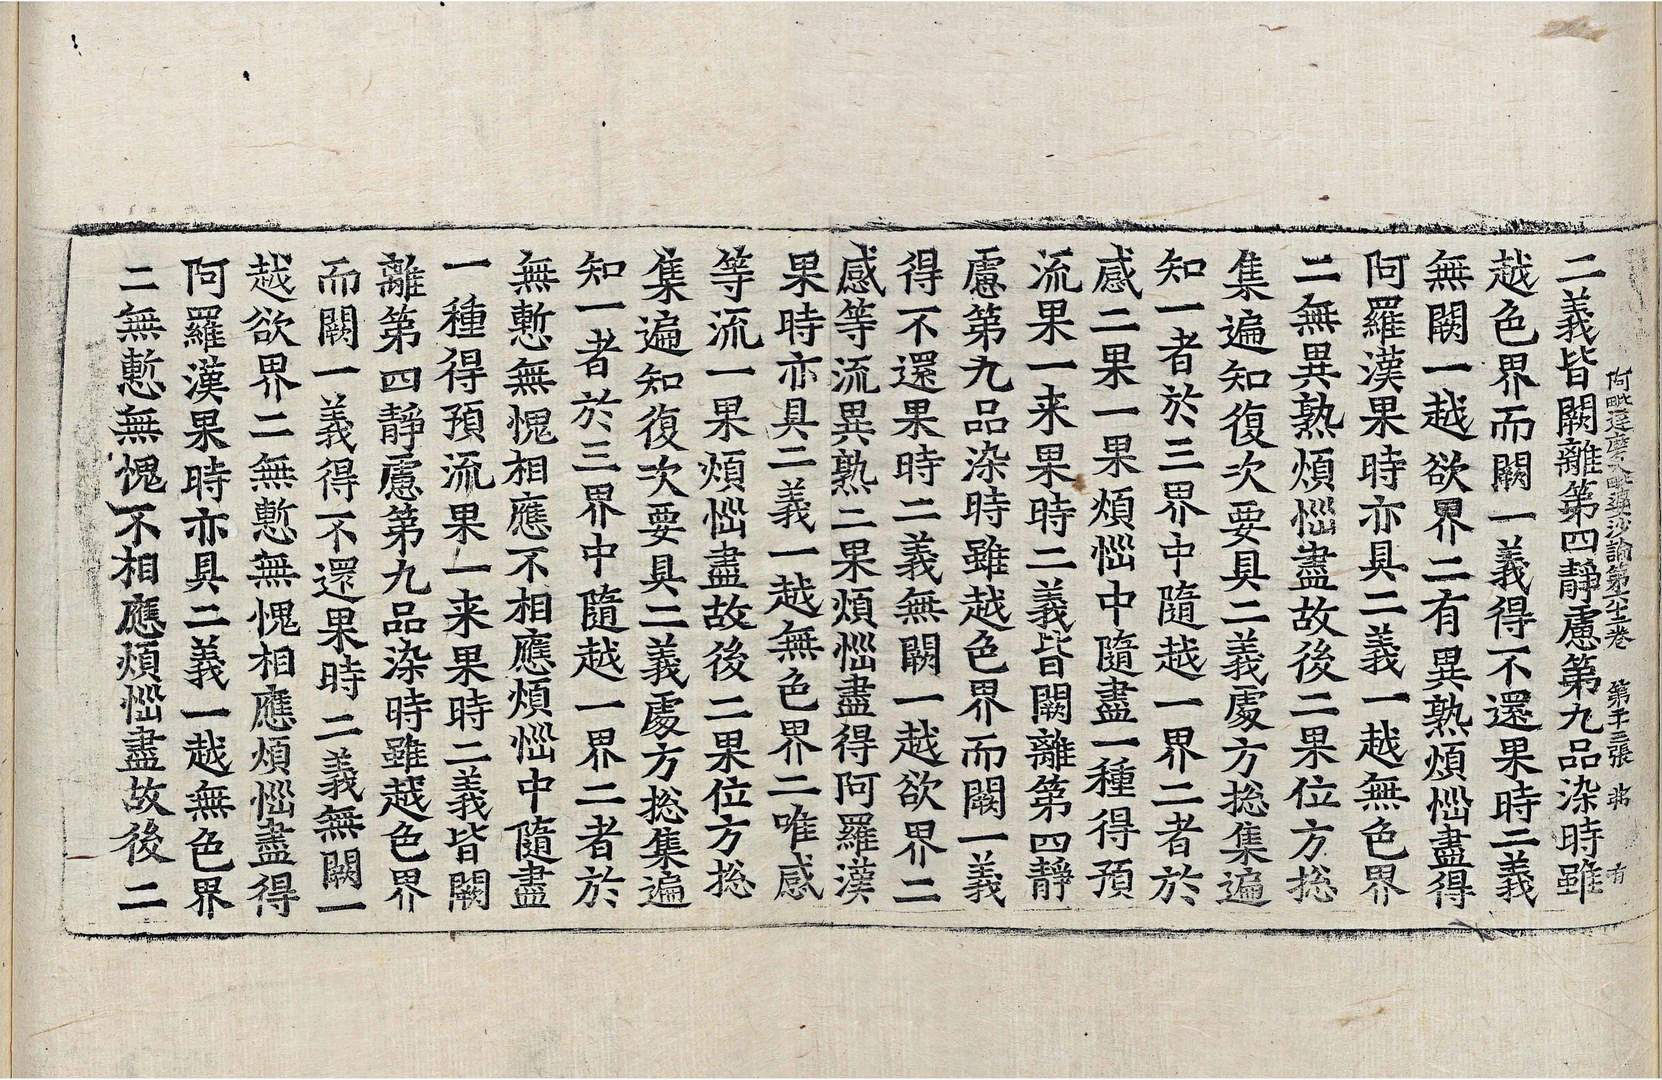 阿毗達磨大毗婆沙論第卷 第張
二義皆闕離第四靜慮第九品染時雖
越色界而闕一義得不還果時二義
無闕一越欲界二有異熟煩惱盡得
阿羅漢果時亦具二義一越無色界
二無異熟煩惱盡故後二果位方捴
集遍知復次要具二義處方捴集遍
知一者於三界中隨越一界二者於
感二果一果煩惱中隨盡一種得預
流果一来果時二義皆闕離第四靜
慮第九品染時雖越色界而闕一義
得不還果時二義無闕一越欲界二
感等流異熟二果煩惱盡得阿羅漢
果時亦具二義一越無色界二唯感
等流一果煩惱盡故後二果位方捴
集遍知復次要具二義處方捴集遍
知一者於三界中隨越一界二者於
無慙無愧相應不相應煩惱中隨盡
一種得預流果一来果時二義皆闕
離第四靜慮第九品染時雖越色界
而闕一義得不還果時二義無闕一
越欲界二無慙無愧相應煩惱盡得
阿羅漢果時亦具二義一越無色界
二無慙無愧不相應煩惱盡故後二